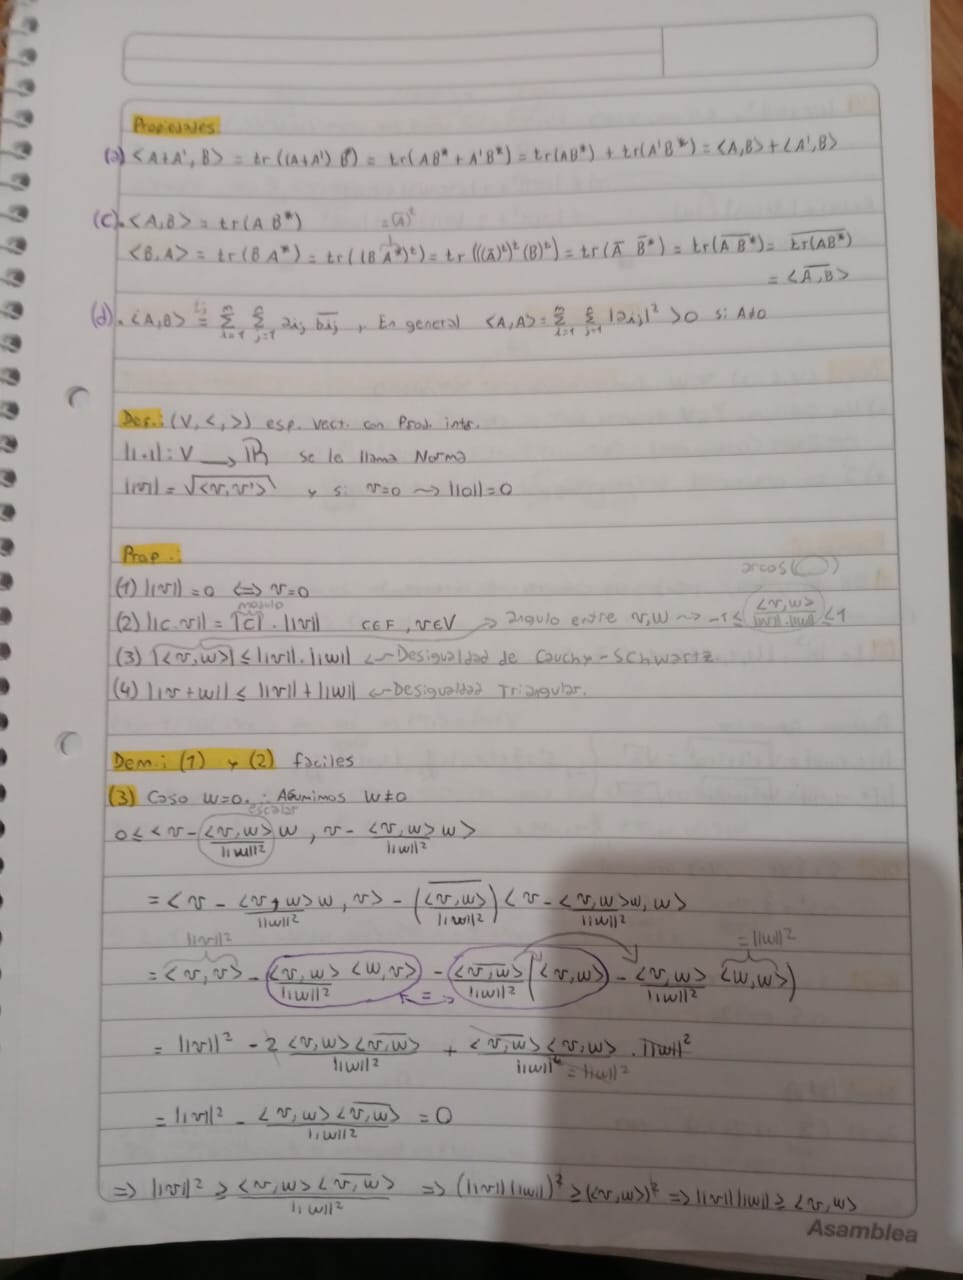 Propiedades
(a) <A+A', B> = tr((A+A') B*) = tr(AB* + A'B*) = tr(AB*) + tr(A'B*) = <A,B> + <A',B>
(c). <A,B> = tr(A B*) =(Ā)ᵗ
<B,A> = tr(B A*) = tr((B A*)ᵗ) = tr(((Ā)ᵗ)ᵗ (B)ᵗ) = tr(Ā B̄*) = tr(\overline{A B*}) = \overline{tr(AB*)}
= <\overline{A,B}>
(d). <A,B> = Σ_{i=1}^{m} Σ_{j=1}^{n} aij \overline{bij} , En general <A,A> = Σ_{i=1}^{m} Σ_{j=1}^{n} |aij|² >0 si A≠0
Def.: (V, <,>) esp. vect. con Prod. int.
||.||: V → ℝ se le llama Norma
||v|| = √<v,v> y si v=0 ⇝ ||0||=0
Prop.:
arcos( )
(1) ||v|| =0 ⟺ v=0
módulo
(2) ||c.v|| = |c| . ||v|| c∈F, v∈V → ángulo entre v,w ⇝ -1 ≤ <v,w>/(||v||.||w||) ≤ 1
(3) |<v,w>| ≤ ||v||.||w|| ← Desigualdad de Cauchy-Schwartz.
(4) ||v+w|| ≤ ||v|| + ||w|| ← Desigualdad Triangular.
Dem.: (1) y (2) faciles
(3) Caso w=0. ∴ Asumimos w≠0
escalar
0 ≤ <v - <v,w>/||w||² w, v - <v,w>/||w||² w>
= <v - <v,w>/||w||² w, v> - (\overline{<v,w>}/||w||²) <v - <v,w>/||w||² w, w>
||v||² =||w||²
= <v,v> - <v,w>/||w||² <w,v> - <\overline{v,w}>/||w||² (<v,w> - <v,w>/||w||² <w,w>)
=
= ||v||² - 2 <v,w><\overline{v,w}>/||w||² + <\overline{v,w}><v,w>/||w||⁴ . ||w||²
= ||w||²
= ||v||² - <v,w><\overline{v,w}>/||w||² = 0
⇒ ||v||² ≥ <v,w><\overline{v,w}>/||w||² ⇒ (||v|| ||w||)² ≥ (<v,w>)² ⇒ ||v|| ||w|| ≥ <v,w>
Asamblea